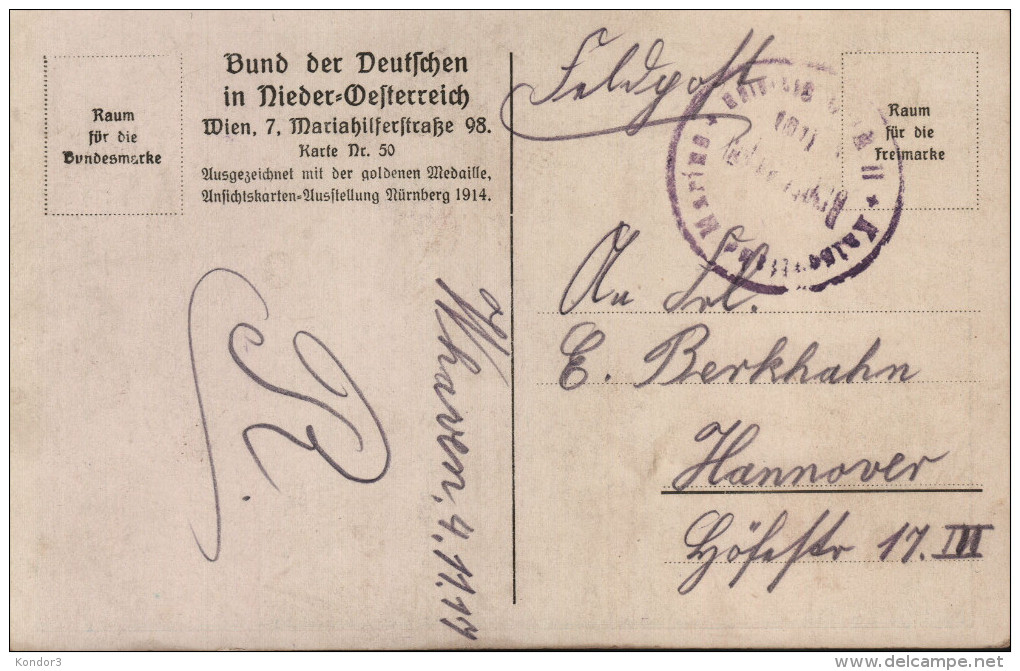 Raum
für die
Bundesmarke
Bund der Deutschen
in Nieder=Oesterreich
Wien, 7, Mariahilferstraße 98.
Karte Nr. 50
Ausgezeichnet mit der goldenen Medaille,
Ansichtskarten=Ausstellung Nürnberg 1914.
Feldpost
Raum
für die
Freimarke
An Frl.
E. Berkhahn
Hannover
Höfestr 17. III
Whaven, 4.11.17
R.
Kondor3
delcampe.net